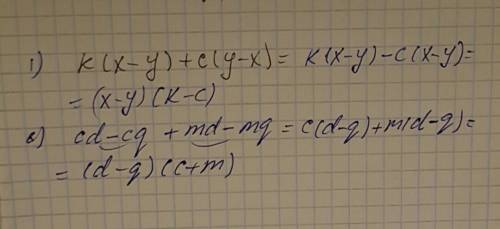 1) k(x-y)+c(y-x)= k(x-y)-c(x-y)=
=(x-y)(k-c)
в) cd-cq+md-mq=c(d-q)+m(d-q)=
=(d-q)(c+m)